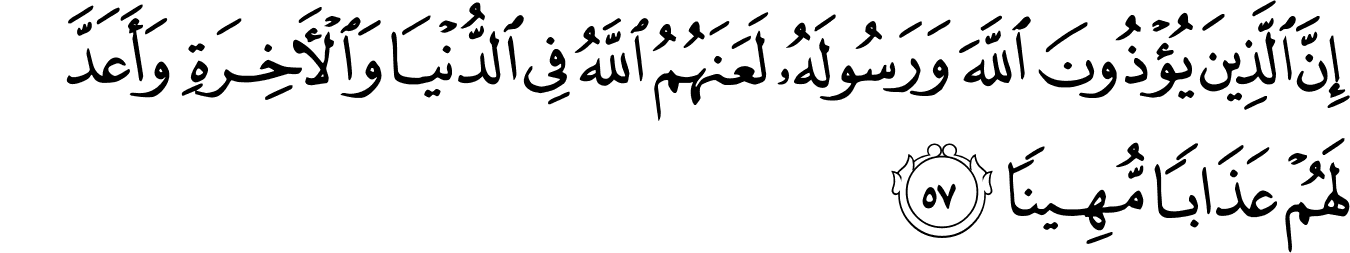 إِنَّ ٱلَّذِينَ يُؤْذُونَ ٱللَّهَ وَرَسُولَهُۥ لَعَنَهُمُ ٱللَّهُ فِى ٱلدُّنْيَا وَٱلْأَخِرَةِ وَأَعَدَّ
لَهُمْ عَذَابًا مُّهِينًا ٥٧